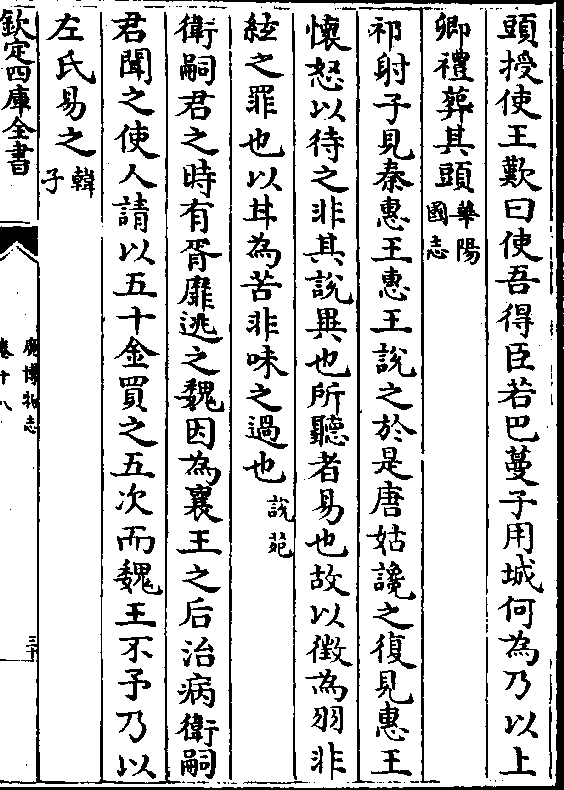 頭授使王歎曰使吾得臣若巴蔓子用城何為乃以上
卿禮葬其頭華陽國志
祁射子見秦惠王惠王說之於是唐姑讒之復見惠王
懷怒以待之非其說異也所聽者易也故以徵為羽非
絃之罪也以甘為苦非味之過也說苑
衛嗣君之時有胥靡逃之魏因為襄王之后治病衛嗣
君聞之使人請以五十金買之五次而魏王不予乃以
左氏易之韓子
欽定四庫全書
廣博物志
卷十八